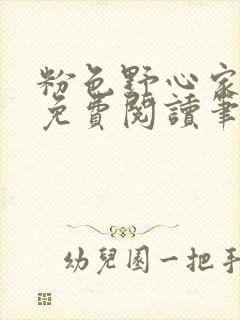 粉色野心家
免費閱讀筆
幼兒園一把手